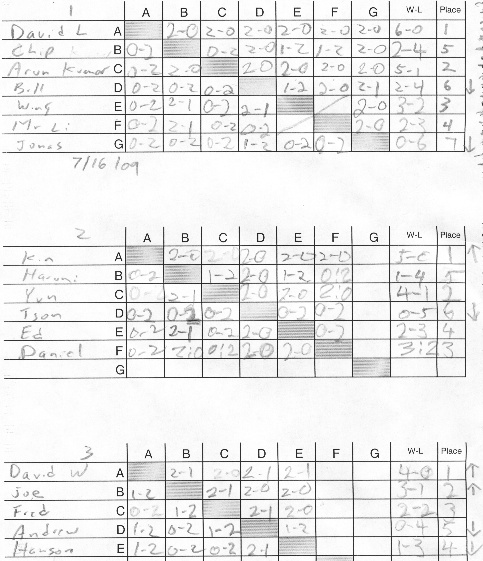 1 A B C D E F G W-L Place
David L A 2-0 2-0 2-0 2-0 2-0 2-0 6-0 1
Chip B 0-2 0-2 2-0 1-2 1-2 2-0 2-4 5
Arun Kumar C 0-2 2-0 2 0 2-0 2-0 2-0 5-1 2
Bill D 0-2 0-2 0-2 1-2 2-0 2-1 2-4 6 ↓
Wing E 0-2 2-1 0-2 2-1 2-0 3-2 3
Mr Li F 0-2 2-1 0-2 0-2 2-0 2-3 4
Jonas G 0-2 0-2 0-2 1-2 0-2 0-2 0-6 7 ↓
7/16/09
2 A B C D E F G W-L Place
Kin A 2-0 2-0 2-0 2-0 2-0 5-0 1 ↑
Harumi B 0-2 1-2 2-0 1-2 0:2 1-4 5
Yun C 2-1 2-0 2-0 2:0 4-1 2
Tson D 0-2 0-2 0-2 0-2 0-2 0-5 6 ↓
Ed E 0-2 2-1 0-2 2-0 0-2 2-3 4
Daniel F 0-2 2:0 0:2 2-0 2-0 3:2 3
G
3 A B C D E F G W-L Place
David W A 2-1 2-0 2-1 2-1 4-0 1 ↑
Joe B 1-2 2-1 2-0 2-0 3-1 2 ↑
Fred C 0-2 1-2 2-1 2-0 2-2 3
Andrew D 1-2 0-2 1-2 1-2 0-4 5 ↓
Hanson E 1-2 0-2 0-2 2-1 1-3 4 ↓